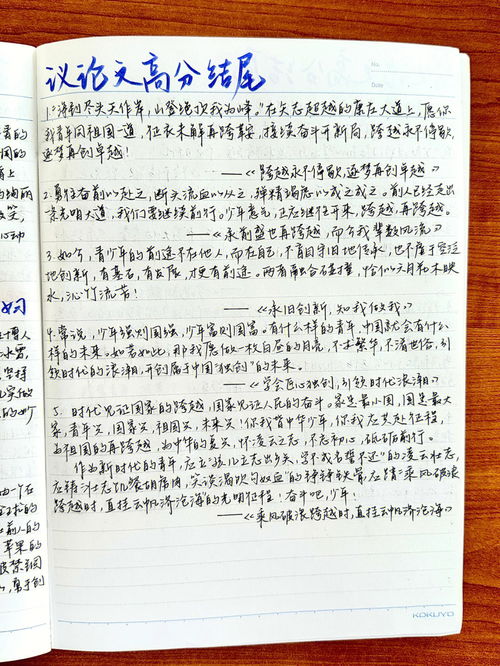 议论文高分结尾
No.
Date
1."海到尽头天作岸，山登绝顶我为峰。"在矢志超越的康庄大道上，愿你
我青年同祖国一道，征衣未解再跨鞍，接续奋斗开新局，跨越永不停歇，
逐梦再创卓越！
——《跨越永不停歇，逐梦再创卓越》
2.勇往奋前以赴之，断头流血以从之，殚精竭虑以成之。前人已经走出
光明大道，我们要继续前行。少年意气，正应继往开来，跨越，再跨越。
——《永前盛也再跨越，而今我辈数风流》
3.如今，青少年的前途不在他人，而在自己，不盲目守旧地传承，也不属于空泛
地创新，有基石，有发展，才更有前途。两者融合而碰撞，恰似六月花木映
水，沁竹流芳！
——《承旧创新，知我做我》
4.常说，少年强则国强，少年富则国富。有什么样的青年，中国就会有什么
样的未来。如若如此，那我愿做一枚白昼的月亮，不求繁华，不淆世俗，引
领时代的浪潮，开创属于中国"独创"的未来。
——《学会匠心独创，引领时代浪潮》
5. 时代见证国家的跨越，国家见证人民的奋斗。家是最小国，国是最大
家，青年兴，国家兴，祖国兴，未来兴！你我皆中华少年，你我应共赴征程，
为祖国的再跨越，为中华的复兴，怀凌云之志，不忘初心，砥砺前行。
作为新时代的青年，应立"孩儿立志出乡关，学不成名誓不还"的凌云壮志，
应铸"壮志饥餐胡虏肉，笑谈渴饮匈奴血"的铮铮铁骨，应踏"乘风破浪
跨越时，直挂云帆济沧海"的光明征程！奋斗吧，少年！
——《乘风破浪跨越时，直挂云帆济沧海》
KOKUYO